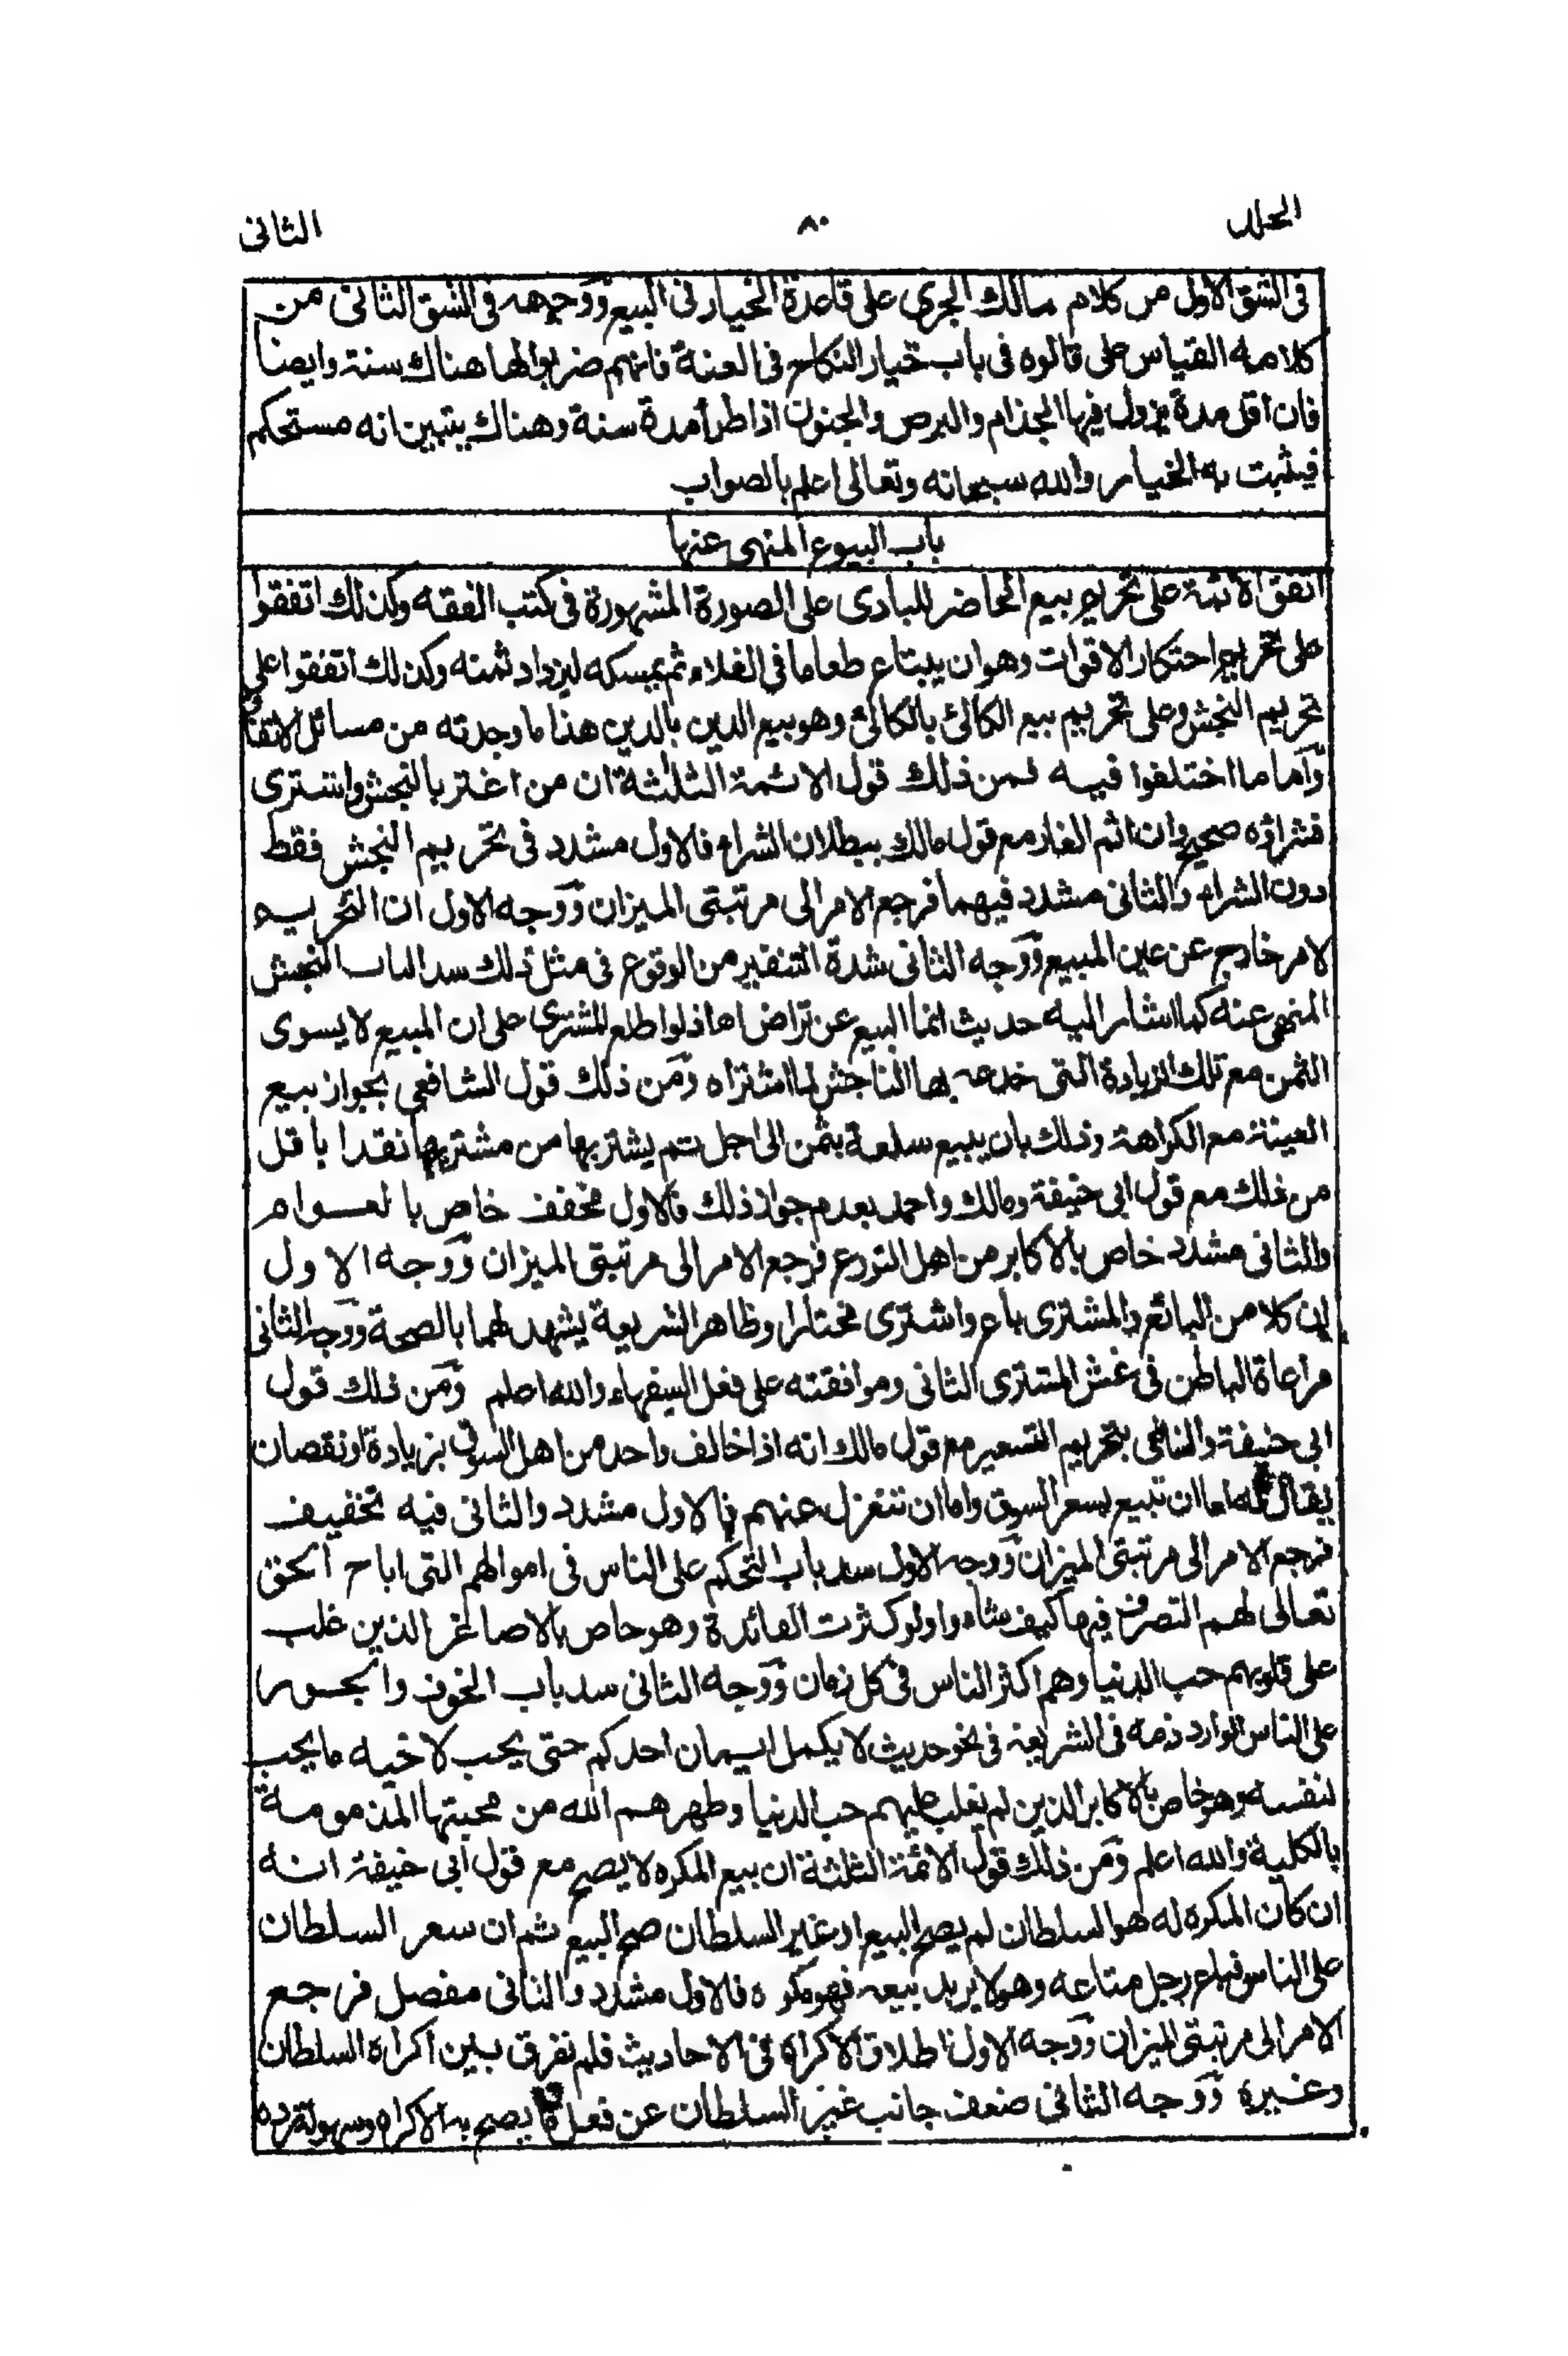 الجلد ٨٠ الثانى
فى الشق الاول من كلام مالك الجرى على قاعدة الخيار فى البيع ووجهه فى الشق الثانى من
كلامه القياس على قالوه فى باب خيار النكاح فى العنة فانهم ضربوا لها هناك سنة وايضا
فان اقل مدة يزول فيها الجذام والبرص والجنون اذا طرأ مدة سنة وهناك يتبين انه مستحكم
فيثبت به الخيار والله سبحانه وتعالى اعلم بالصواب
باب البيوع المنهى عنها
اتفق الائمة على تحريم بيع الحاضر للبادى على الصورة المشهورة فى كتب الفقه وكذلك اتفقوا
على تحريم احتكار الاقوات وهو ان يبتاع طعاما فى الغلاء ثم يمسكه ليزداد ثمنه وكذلك اتفقوا على
تحريم النجش وعلى تحريم بيع الكالئ بالكالئ وهو بيع الدين بالدين هذا ما وجدته من مسائل الاتفاق
واما ما اختلفوا فيه فمن ذلك قول الائمة الثلثة ان من اغتر بالنجش واشترى
فشراؤه صحيح وان اثم الغار مع قول مالك ببطلان الشراء فالاول مشدد فى تحريم النجش فقط
دون الشراء والثانى مشدد فيهما فرجع الامر الى مرتبتى الميزان ووجه الاول ان التحريم
لامر خارج عن عين المبيع ووجه الثانى شدة التنفير من الوقوع فى مثل ذلك سدا لباب النجش
المنهى عنه كما اشار اليه حديث انما البيع عن تراض اه اذ لو اطلع المشترى على ان المبيع لا يسوى
الثمن مع تلك الزيادة التى خدعه بها الناجش لما اشتراه ومن ذلك قول الشافعى بجواز بيع
العينة مع الكراهة وذلك بان يبيع سلعة بثمن الى اجل ثم يشتريها من مشتريها نقدا باقل
من ذلك مع قول ابى حنيفة ومالك واحمد بعدم جواز ذلك فالاول مخفف خاص بالعوام
والثانى مشدد خاص بالاكابر من اهل التورع فرجع الامر الى مرتبتى الميزان ووجه الاول
ان كلا من البائع والمشترى باع واشترى مختارا وظاهر الشريعة يشهد لهما بالصحة ووجه الثانى
مراعاة الباطن فى غش المشترى الثانى وموافقته على فعل السفهاء والله اعلم ومن ذلك قول
ابى حنيفة والشافعى بتحريم التسعير مع قول مالك انه اذا خالف واحد من اهل السوق بزيادة او نقصان
يقال له اما ان تبيع بسعر السوق واما ان تنعزل عنهم فالاول مشدد والثانى فيه تخفيف
فرجع الامر الى مرتبتى الميزان ووجه الاول سد باب التحكم على الناس فى اموالهم التى اباح الحق
تعالى لهم التصرف فيها كيف شاءوا ولو كثرت الفائدة وهو خاص بالاصاغر الذين غلب
على قلوبهم حب الدنيا وهم اكثر الناس فى كل زمان ووجه الثانى سد باب الخوف والجور
على الناس الوارد ذمه فى الشريعة فى نحو حديث لا يكمل ايمان احدكم حتى يحب لاخيه ما يحب
لنفسه وهو خاص بالاكابر الذين لم يغلب عليهم حب الدنيا وطهرهم الله من محبتها المذمومة
بالكلية والله اعلم ومن ذلك قول الائمة الثلثة ان بيع المكره لا يصح مع قول ابى حنيفة انه
ان كان المكره له هو السلطان لم يصح البيع او غير السلطان صح البيع ثم ان سعر السلطان
على الناس فباع رجل متاعه وهو لا يريد بيعه فهو مكره فالاول مشدد والثانى مفصل فرجع
الامر الى مرتبتى الميزان ووجه الاول اطلاق الاكراه فى الاحاديث فلم نفرق بين اكراه السلطان
وغيره ووجه الثانى ضعف جانب غير السلطان عن فعل ما يصح به الاكراه وسهولة